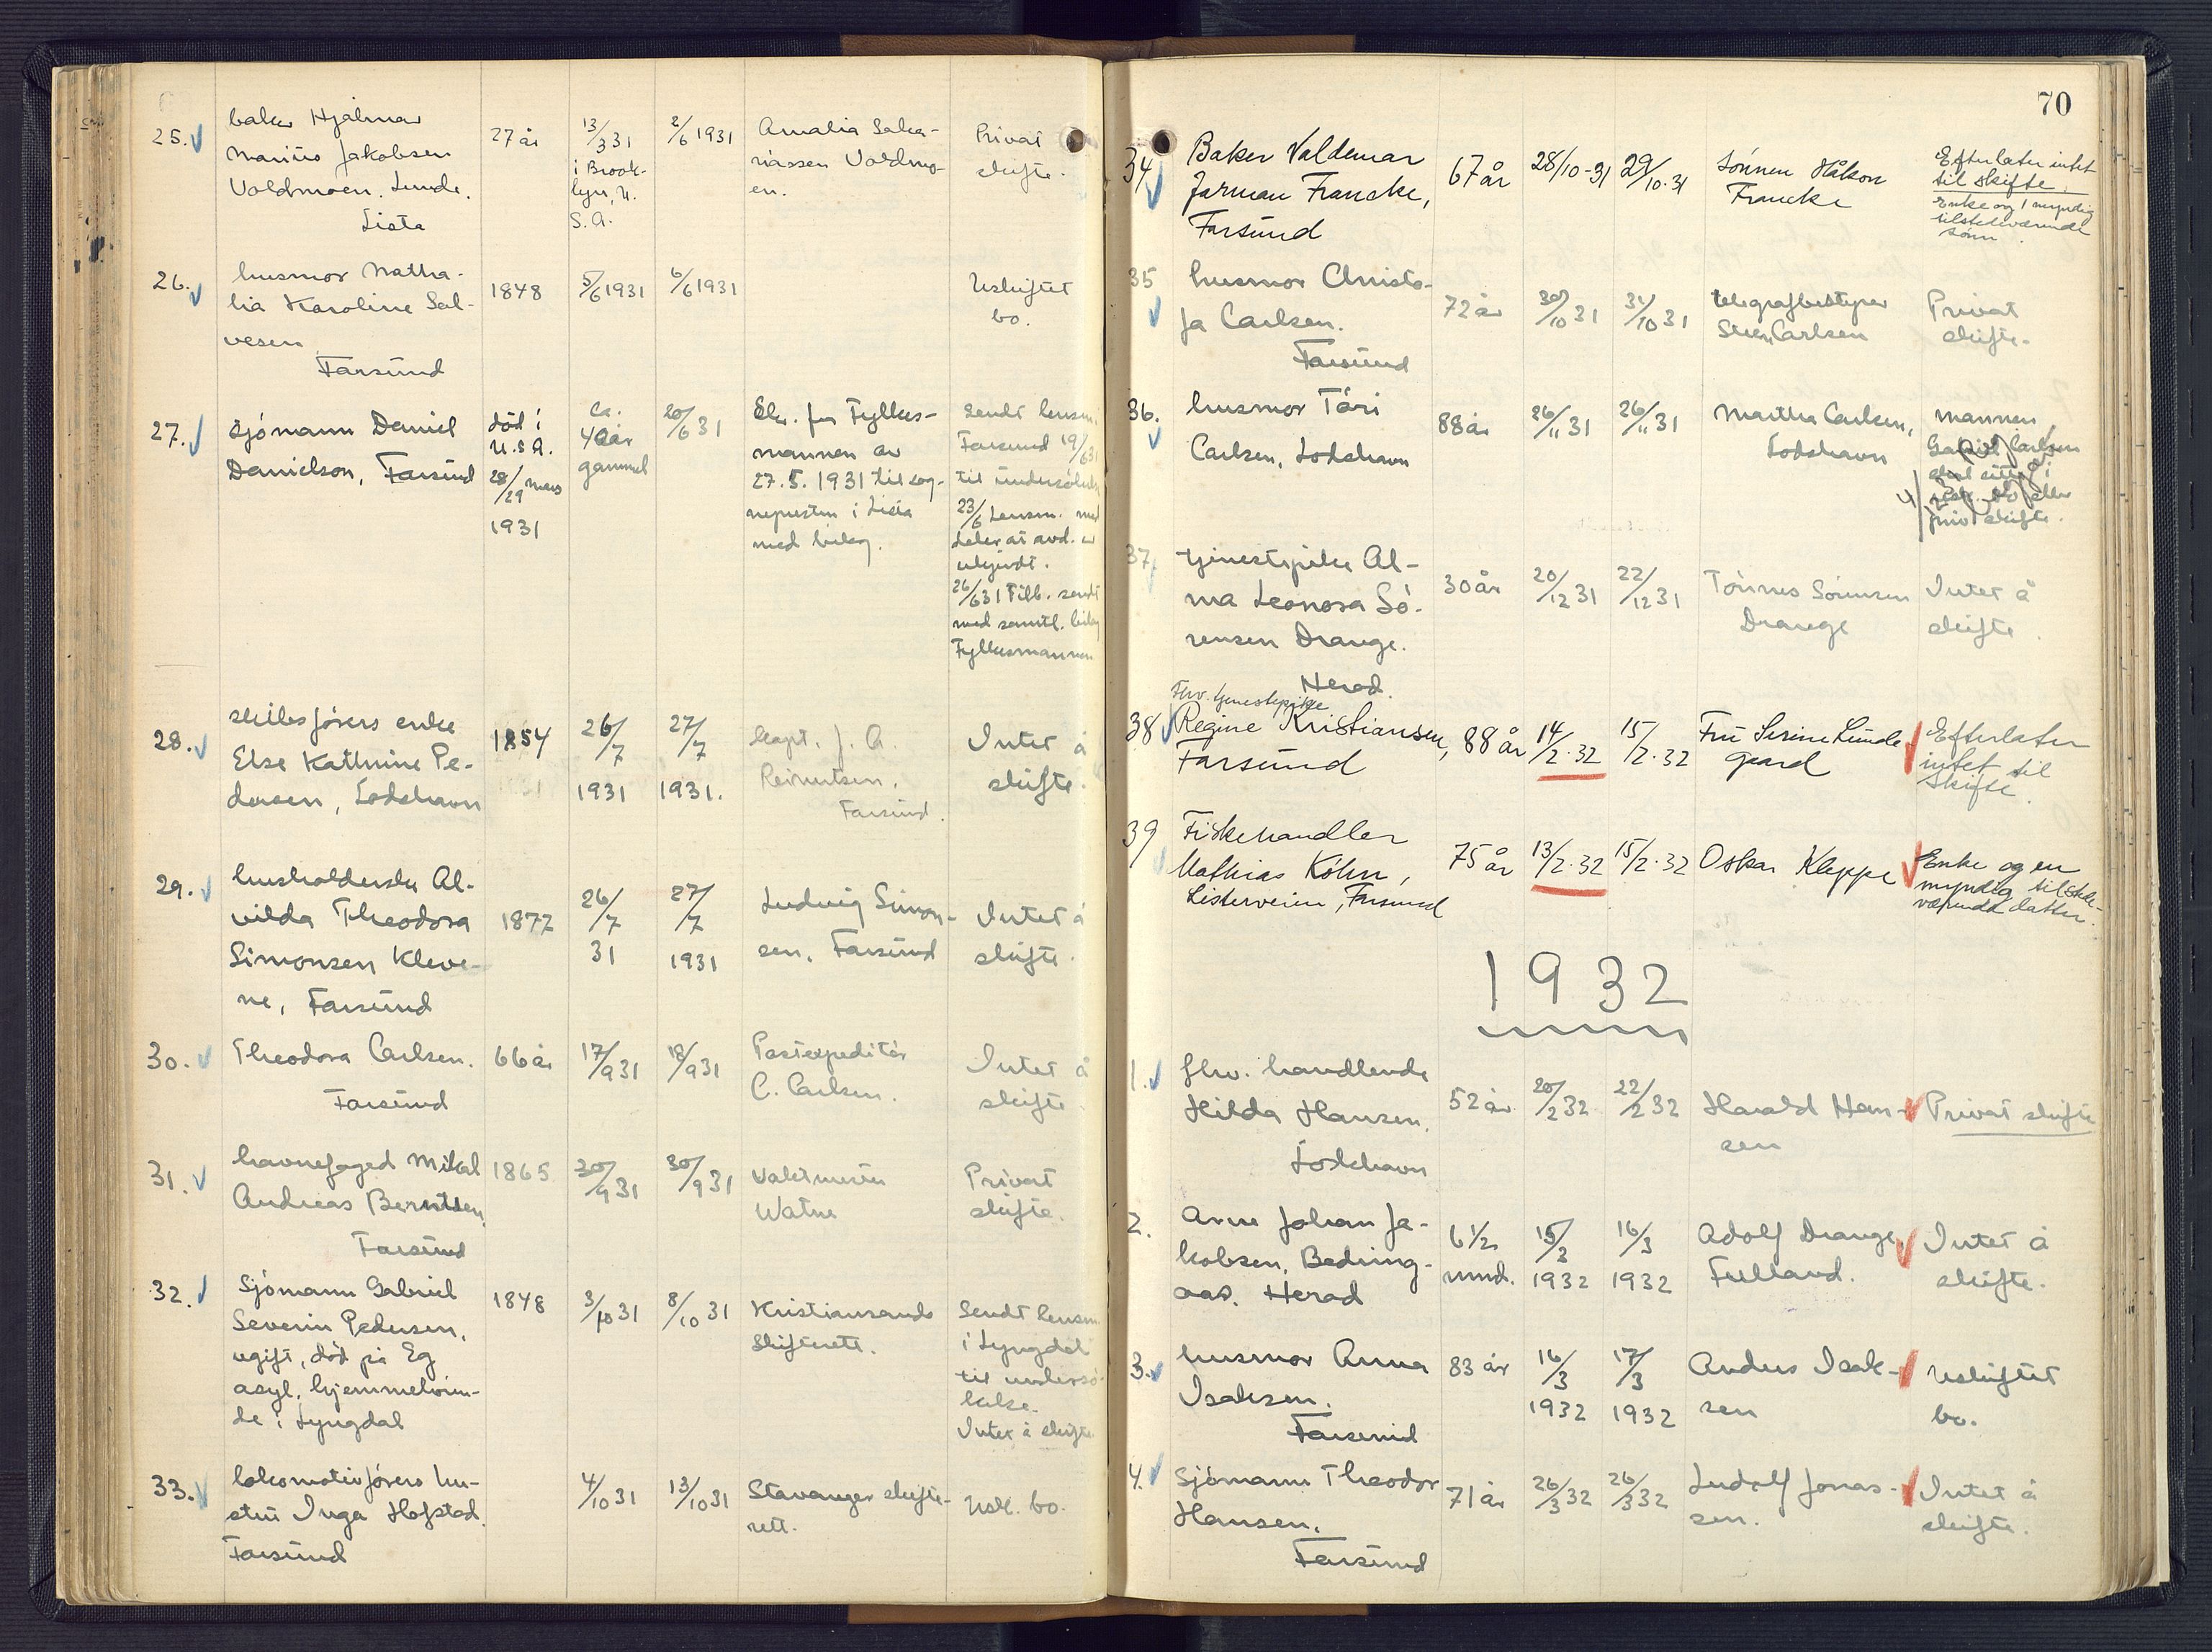 25.
baker Hjalmar
Marius Jakobsen
Voldmoen. Lunde.
Lista
27 år
13/3 31
i Brook-
lyn, U.
S.A.
2/6 1931
Amalia Saka-
riassen Voldmo-
en.
Privat
skifte.
26.
husmor Natha-
lia Karoline Sal-
vesen
Farsund
1848
5/6 1931
6/6 1931
Uskiftet
bo.
27.
sjömann Daniel
Danielson, Farsund
död i
U.S.A.
28/29 mars
1931
ca.
40 år
gammel
20/6 31
Skr. fra Fylkes-
mannen av
27.5.1931 til sog-
nepresten i Lista
med bilag.
Sendt lensm.
Farsund 19/6 31
til undersökelse
23/6 Lensm. med-
deler at avd. er
ukjendt.
26/6 31 Tilb. sendt
med samtl. bilag
Fylkesmannen
28.
skibsförers enke
Else Kathrine Pe-
dersen, Lodshavn
1854
26/7
1931
27/7
1931.
Kapt. J. A.
Reinertsen.
Farsund.
Intet å
skifte.
29.
husholderske Al-
vilda Theodora
Simonsen Kleve-
ne, Farsund
1877
26/7
31
27/7
1931
Ludvig Simon-
sen, Farsund
Intet å
skifte.
30.
Theodora Carlsen.
Farsund
66 år
17/9 31
18/9 31
Postexpeditör
C. Carlsen.
Intet å
skifte.
31.
havnefoged Mikal
Andreas Berntsen
Farsund
1865
30/9 31
30/9 31
Vaktmester
Watne
Privat
skifte.
32.
Sjömann Gabriel
Severin Pedersen,
ugift, död på Eg
asyl, hjemmehören-
de i Lyngdal
1848
3/10 31
8/10 31
Kristiansands
skifterett.
Sendt lensm.
i Lyngdal
til undersö-
kelse.
Intet å skifte
33.
lokomotivförers hu-
stru Inga Hofstad.
Farsund
4/10 31
13/10 31
Stavanger skifte-
rett.
Usk. bo.
70
34
Baker Valdemar
Jarman Francke,
Farsund
67 år
28/10-31
29/10.31
Sönnen Håkon
Francke
Efterlater intet
til skifte.
Enke og 1 myndig
tilstedeværende
sönn.
35
husmor Christo-
fa Carlsen.
Farsund
72 år
30/10 31
31/10 31
telegrafbestyrer
Sven Carlsen
Privat
skifte.
36.
husmor Tåri
Carlsen, Lodshavn
88 år
26/11 31
26/11 31
Martha Carlsen,
Lodshavn
mannen
Gabriel Carlsen
skal sitte i
usk. bo eller
priv. skifte.
37.
tjenestepike Al-
ma Leonora Sö-
rensen Drange.
Herad.
30 år
20/12 31
22/12 31
Tönnes Sörensen
Drange
Intet å
skifte.
38
Fhv. tjenestepike
Regine Kristiansen,
Farsund
88 år
14/2.32
15/2.32
Fru Serine Lunde-
gaard
Efterlater
intet til
skifte.
39
Fiskehandler
Mathias Köhn,
Listerveien, Farsund
75 år
13/2.32
15/2.32
Oskar Kleppe
Enke og en
myndig tilstede-
værende datter.
1932
1.
fhv. handlende
Hilda Hansen.
Lodshavn
52 år
20/2 32
22/2 32
Harald Han-
sen
Privat skifte
2.
Arne Johan Ja-
kobsen, Bedring-
aas. Herad
6 1/2
mnd.
15/3
1932
16/3
1932
Adolf Drange,
Fulland.
Intet å
skifte.
3.
husmor Anna
Isaksen.
Farsund
83 år
16/3
1932
17/3
1932
Anders Isak-
sen
Uskiftet
bo.
4.
Sjömann Theodor
Hansen.
Farsund
71 år
26/3 32
26/3 32
Ludolf Jonas-
sen.
Intet å
skifte.